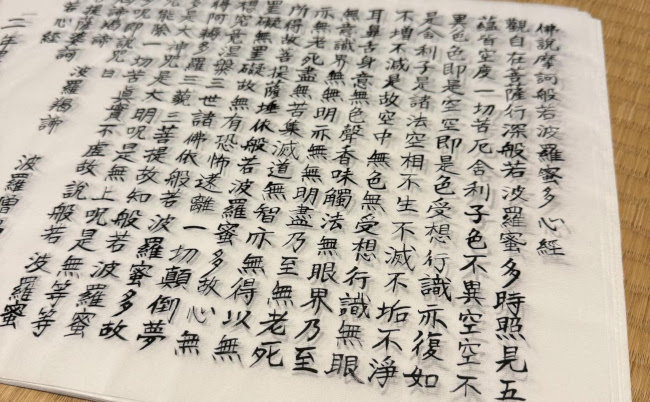 佛說摩訶般若波羅蜜多心經
觀自在菩薩行深般若波羅蜜多時照見五
蘊皆空度一切苦厄舍利子色不異空空不
異色色即是空空即是色受想行識亦復如
是舍利子是諸法空相不生不滅不垢不淨
不增不減是故空中無色無受想行識無眼
耳鼻舌身意無色聲香味觸法無眼界乃至
無意識界無無明亦無無明盡乃至無老死
亦無老死盡無苦集滅道無智亦無得以無
所得故菩提薩埵依般若波羅蜜多故心無
罣礙無罣礙故無有恐怖遠離一切顛倒夢
想究竟涅槃三世諸佛依般若波羅蜜多故
得阿耨多羅三藐三菩提故知般若波羅蜜
多是大神呪是大明呪是無上呪是無等等
呪能除一切苦真實不虛故說般若波羅蜜
多呪即說呪曰
羯諦 波羅羯諦 波羅僧
提薩婆訶
若心經
二年